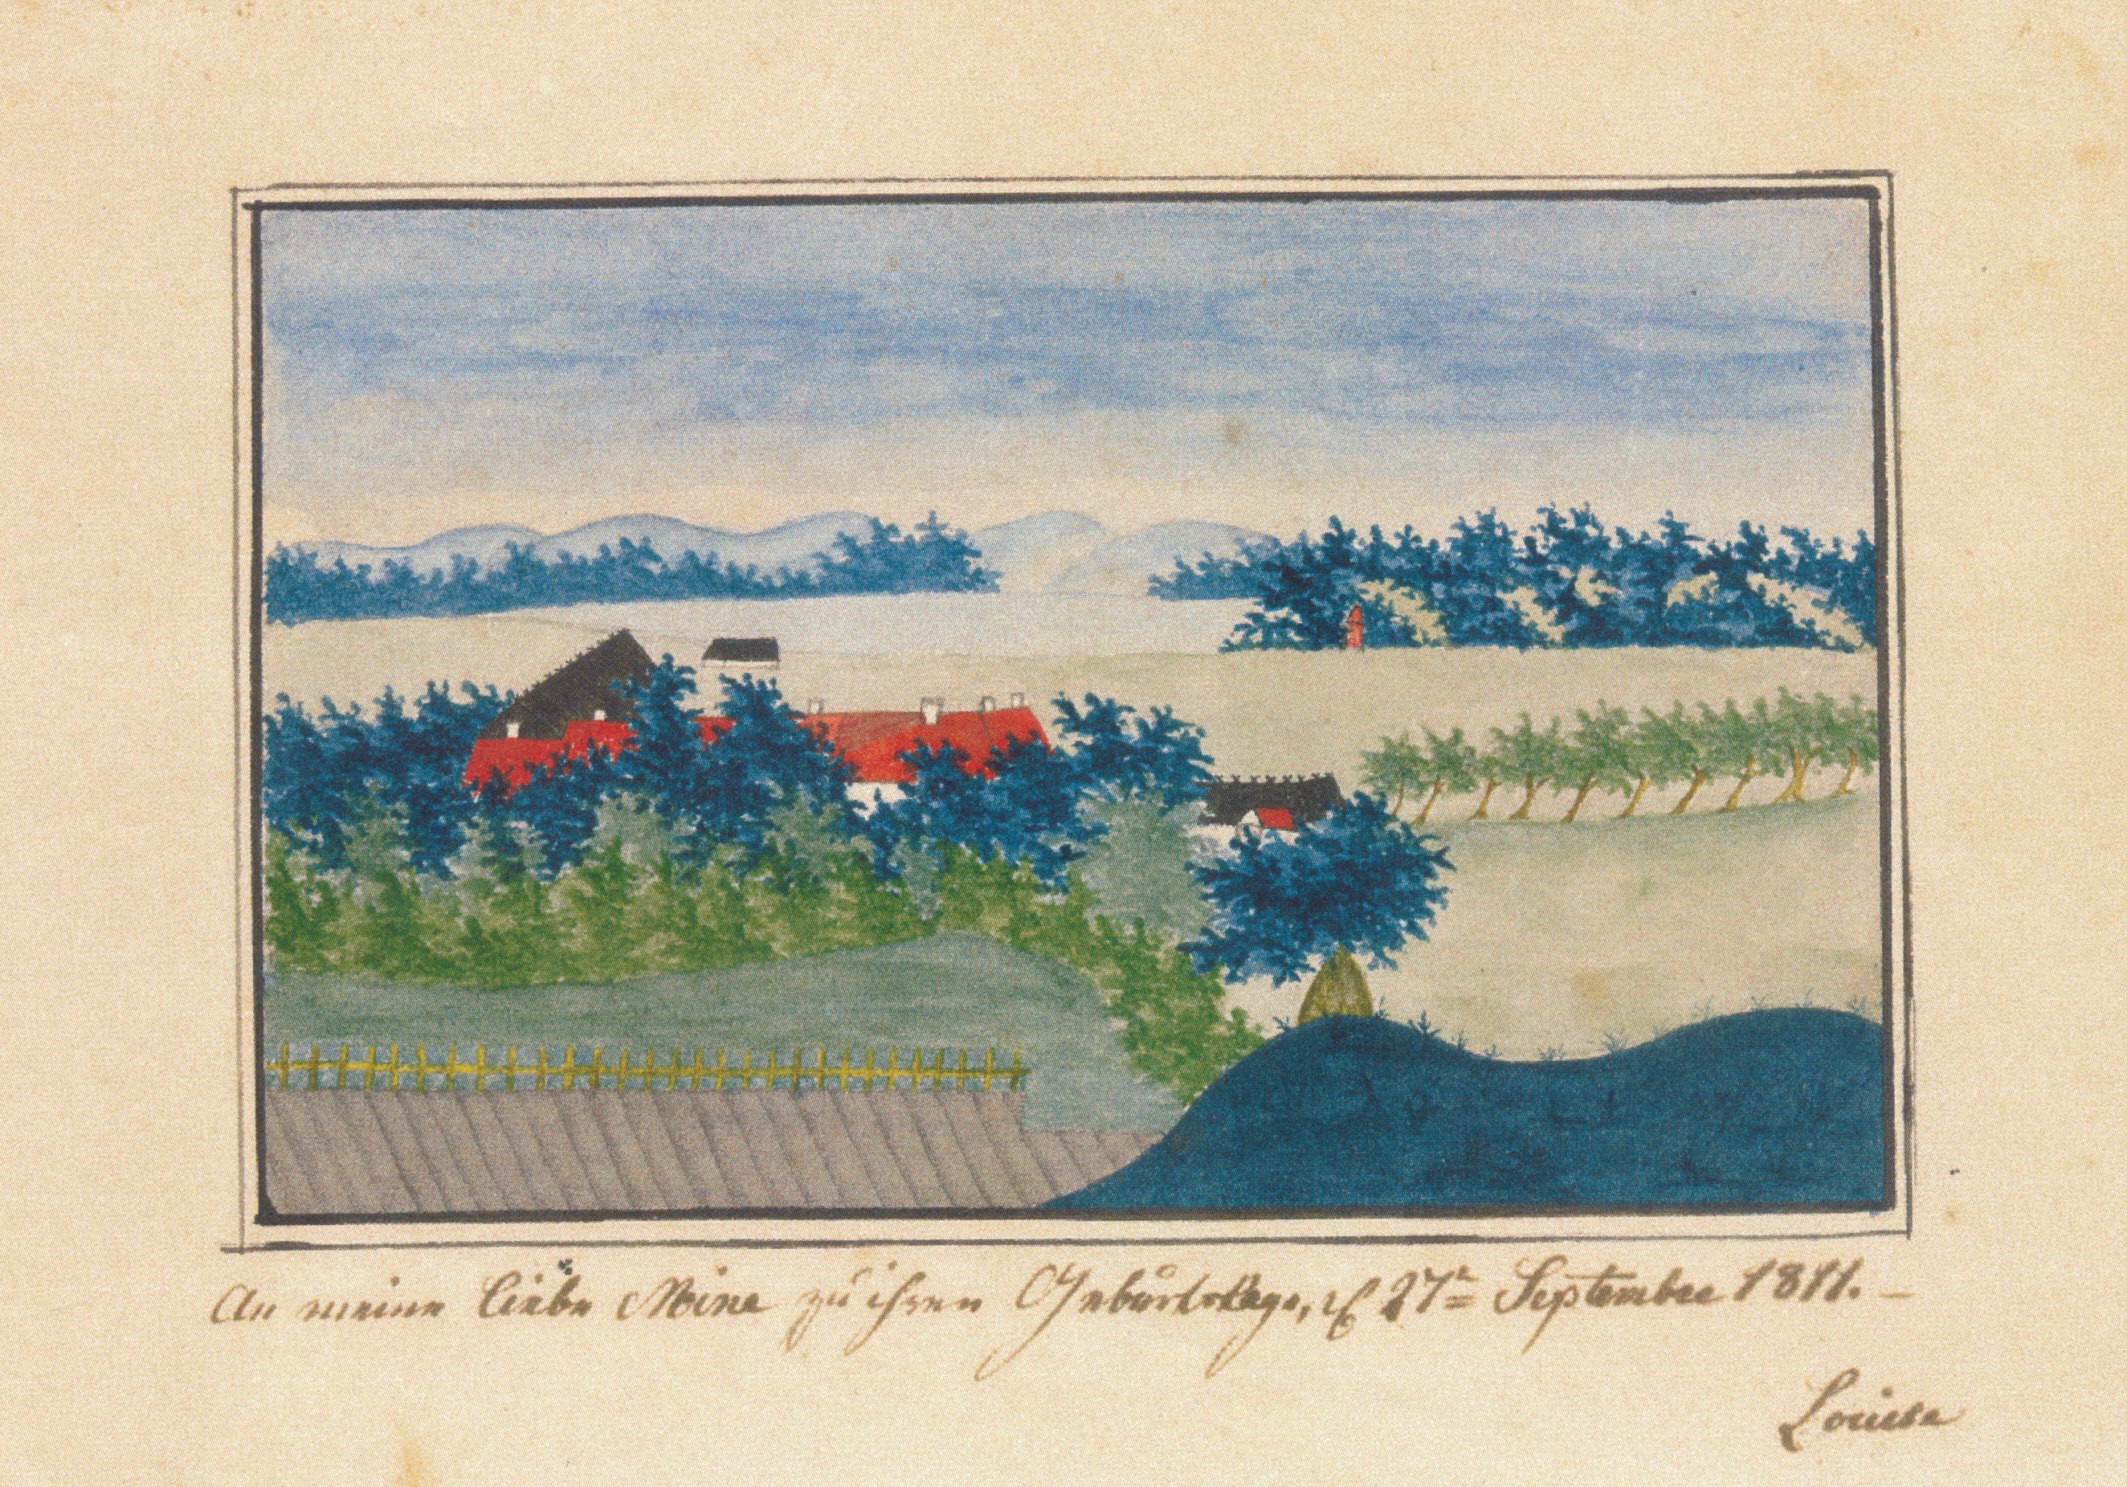 An meine liebe Mine zu ihren Geburtstage, d 27n September 1811. –
Louise